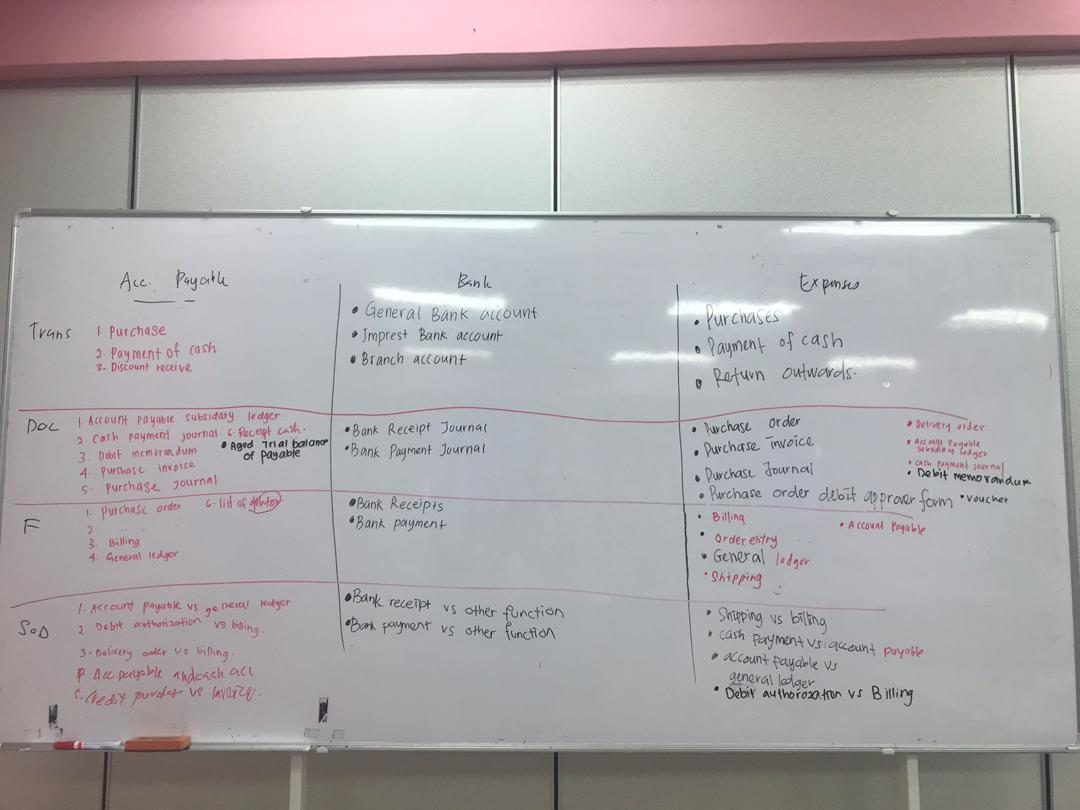 Acc. Payable
Bank
Expenses
Trans
1. Purchase
2. Payment of cash
3. Discount receive
• General Bank account
• Imprest Bank account
• Branch account
• Purchases
• Payment of cash
• Return outwards.
Doc
1. Account payable subsidary ledger.
2. Cash payment journal. 6. Receipt cash.
3. Debit memorandum
4. Purchase invoice
5. Purchase journal
• Aged Trial balance
of payable
• Bank Receipt Journal
• Bank Payment Journal
• Purchase order
• Purchase invoice
• Purchase Journal
• Purchase order debit approver form
• voucher
• Delivery order
• Account Payable
subsidiary ledger
• Cash payment journal
• Debit memorandum
F
1. Purchase order
2.
3. Billing
4. General ledger
6. list of
• Bank Receipts
• Bank payment
• Billing
• Order entry
• General ledger
• Shipping
• Account Payable
SoD
1. Account payable vs general ledger
2 Debit authorization vs billing.
3. Delivery order vs billing.
Acc payable and cash acc
Credit vs Invoice.
• Bank receipt vs other function
• Bank payment vs other function
• Shipping vs billing
• cash payment vs account payable
• account payable vs
general ledger
• Debit authorozation vs Billing